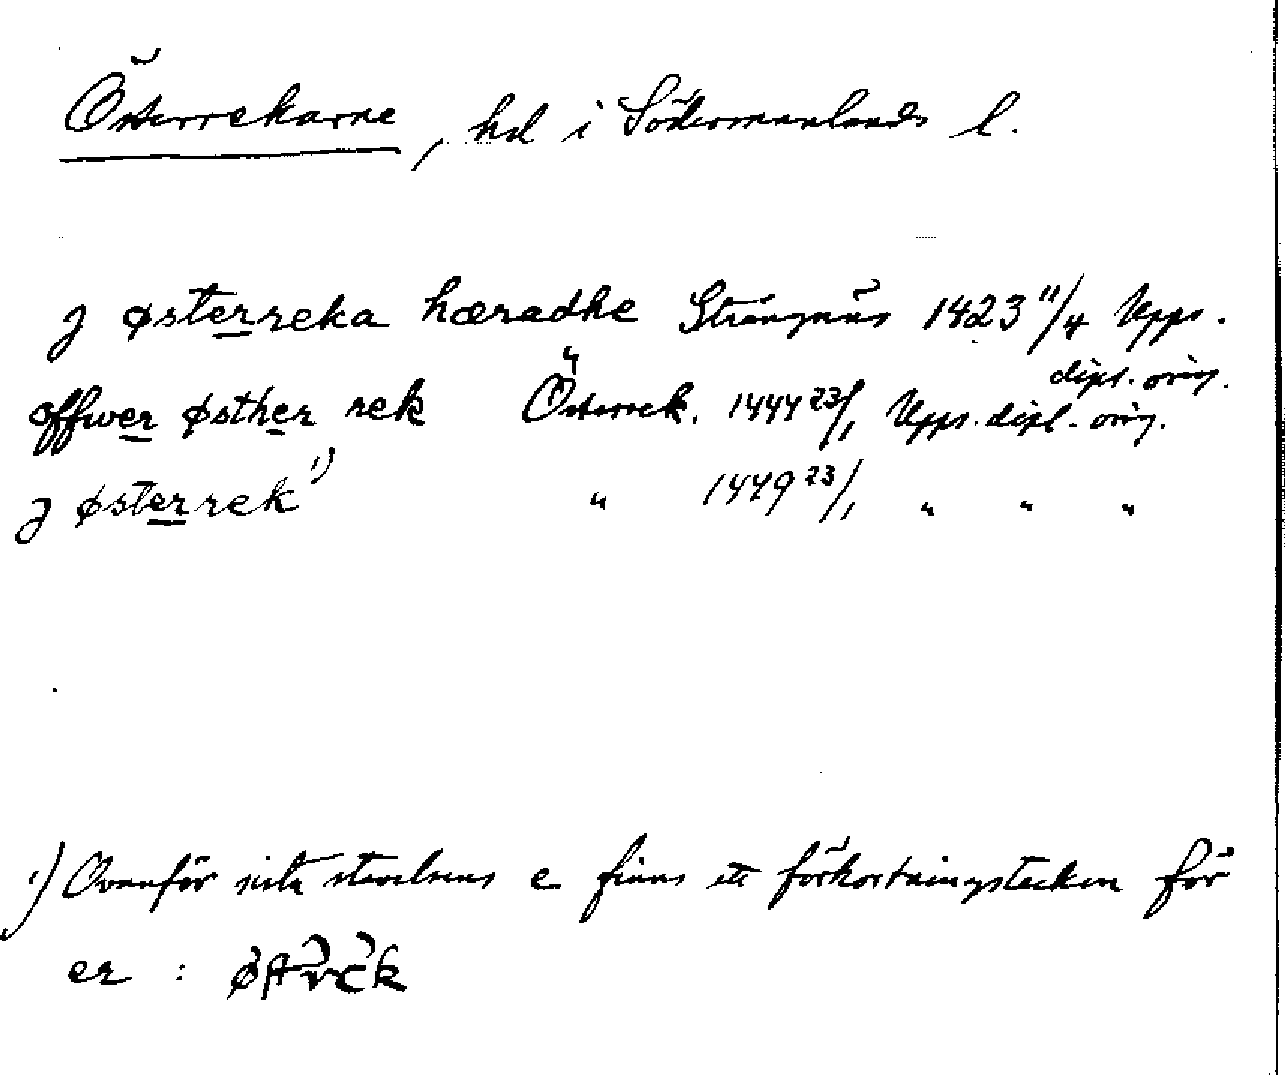 Österrekarne, hd i Södermanlands l.
J østerreka hæradhe Strängnäs 1423 11/4 Upps. dipl. orig.
offwer østher rek Österrek. 1444 23/1 Upps. dipl. orig.
J østerrek 1) " 1449 23/1 " " "
1) Ovanför sista stavelsens e finns ett förkortningstecken för
er : østrek